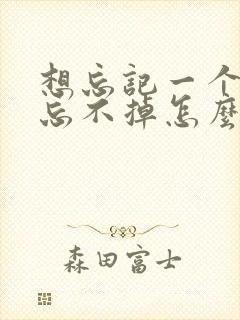 想忘记一个
忘不掉怎麽
森田富士